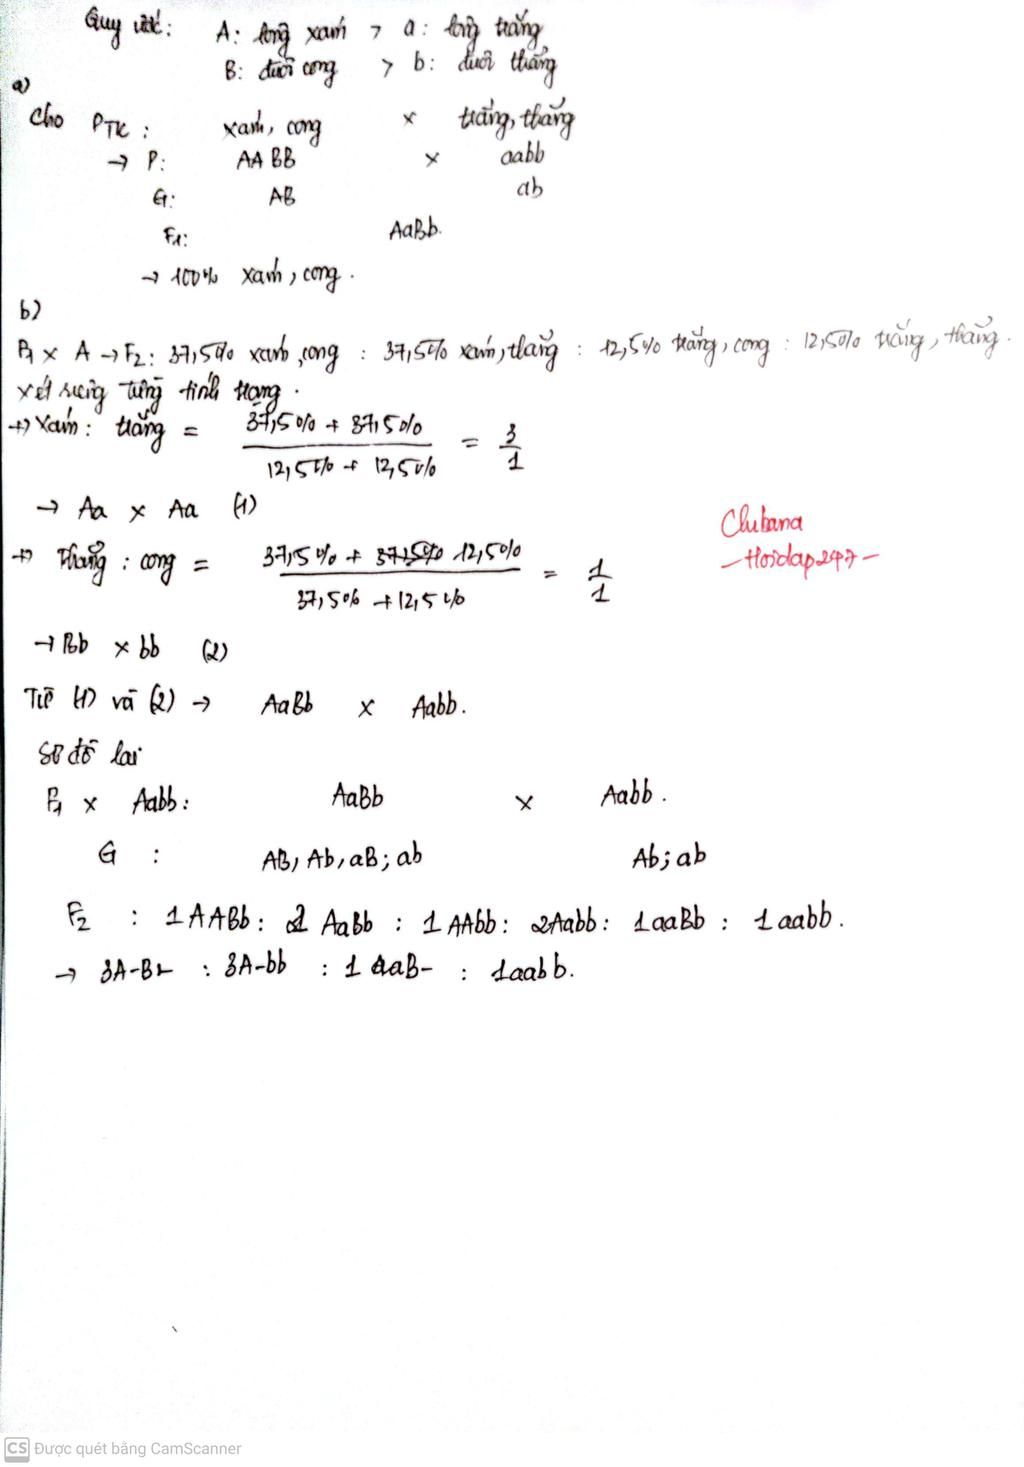 Quy ước: A: lông xám > a: lông trắng
B: đuôi cong > b: đuôi thẳng
a)
Cho PTC: xám, cong × trắng, thẳng
→ P: AABB × aabb
G: AB ab
F1: AaBb.
→ 100% xám, cong.
b)
F1 × A → F2: 37,5% xám, cong : 37,5% xám, thẳng : 12,5% trắng, cong : 12,5% trắng, thẳng.
Xét riêng từng tính trạng.
+) Xám : trắng = (37,5% + 37,5%) / (12,5% + 12,5%) = 3/1
→ Aa × Aa (1)
+) Thẳng : cong = (37,5% + 12,5%) / (37,5% + 12,5%) = 1/1
→ Bb × bb (2)
Từ (1) và (2) → AaBb × Aabb.
Sơ đồ lai
F1 × Aabb: AaBb × Aabb.
G : AB; Ab; aB; ab Ab; ab
F2 : 1AABb : 2AaBb : 1AAbb : 2Aabb : 1aaBb : 1aabb.
→ 3A-B- : 3A-bb : 1aaB- : 1aabb.
Clubana
- Hoidap247 -
CS Được quét bằng CamScanner